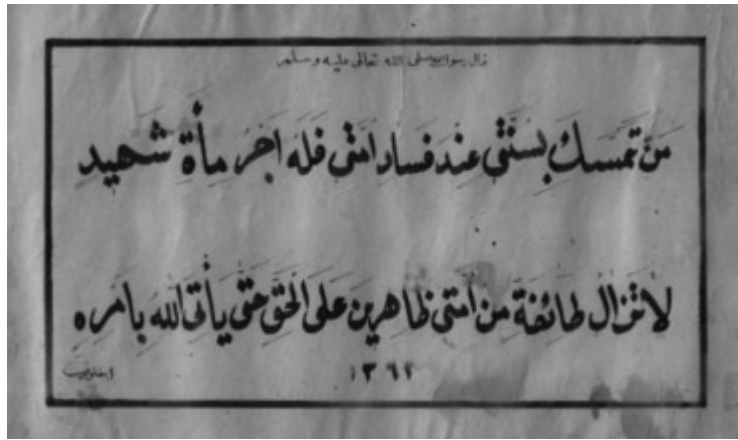 قال رسول الله صلى الله تعالى عليه وسلم
من تمسك بسنتى عند فساد امتى فله اجر مأة شهيد
لا تزال طائفة من امتى ظاهرين على الحق حتى يأتى الله بامره
١٣٦٢